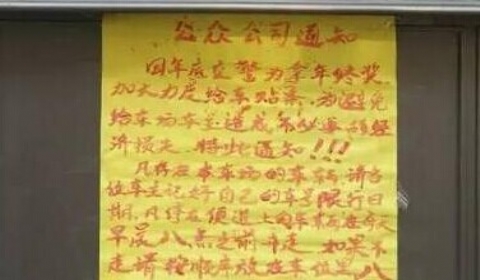 公众公司通知
因年底交警为拿年终奖
加大力度给车贴条.为避免
给车场车主造成不必要的经
济损失.特此通知!!!
凡停在本车场的车辆,请各
位车主记好自己的车号限行日
期,凡停在便道上的车
早晨八点之前开走.如果不
走请按顺序放在车位里.八